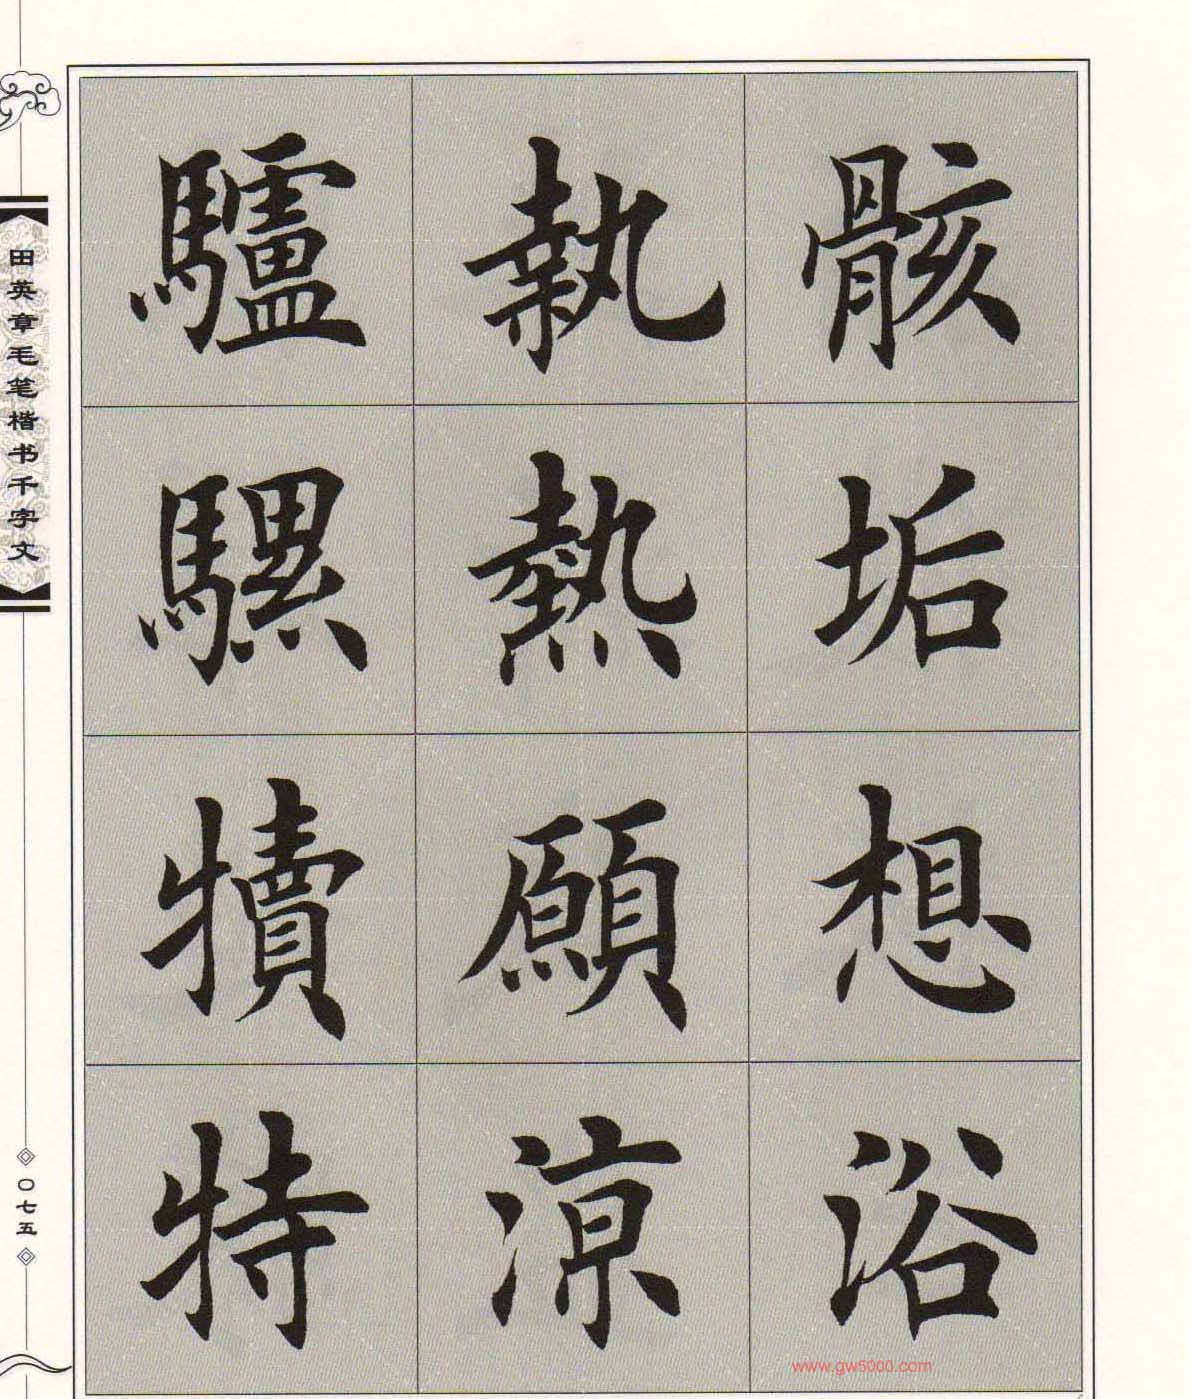 骸垢想浴
執熱願涼
驢騾犢特
田英章毛笔楷书千字文
〇七五
www.gw5000.com